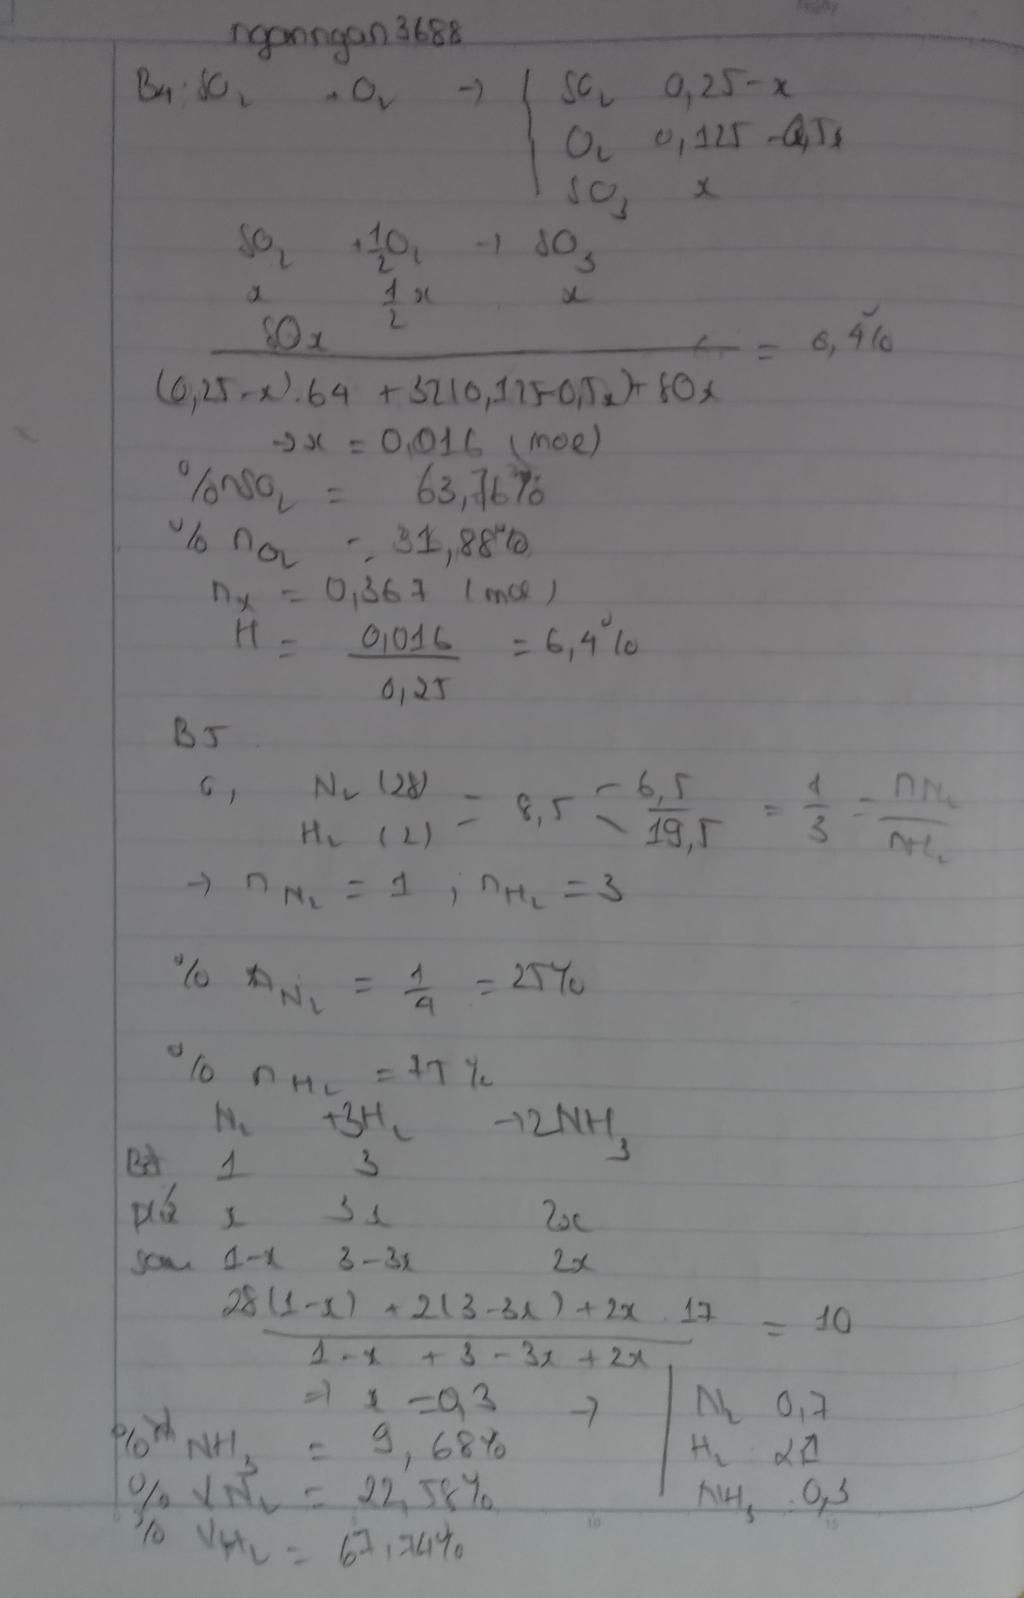 nganngan3688
B4: SO2 + O2 → { SO2 0,25-x
O2 0,125 - 0,5x
SO3 x
SO2 + 1/2 O2 → SO3
x 1/2 x x
80x / (0,25-x).64 + 32(0,125-0,5x) + 80x = 6,4%
→ x = 0,016 (mol)
% nSO2 = 63,76%
% nO2 = 31,88%
nx = 0,367 (mol)
H = 0,016 / 0,25 = 6,4%
B5
N2 (28)
H2 (2) = 8,5 6,5 / 19,5 = 1/3 = nN2 / nH2
→ nN2 = 1 ; nH2 = 3
% nN2 = 1/4 = 25%
% nH2 = 75%
N2 + 3H2 → 2NH3
Bđ 1 3
pứ x 3x 2x
sau 1-x 3-3x 2x
28(1-x) + 2(3-3x) + 2x . 17 / 1-x + 3-3x + 2x = 10
⇒ x = 0,3 → N2 0,7
% NH3 = 9,68% H2 2,1
% VN2 = 22,58% NH3 0,3
% VH2 = 67,74%